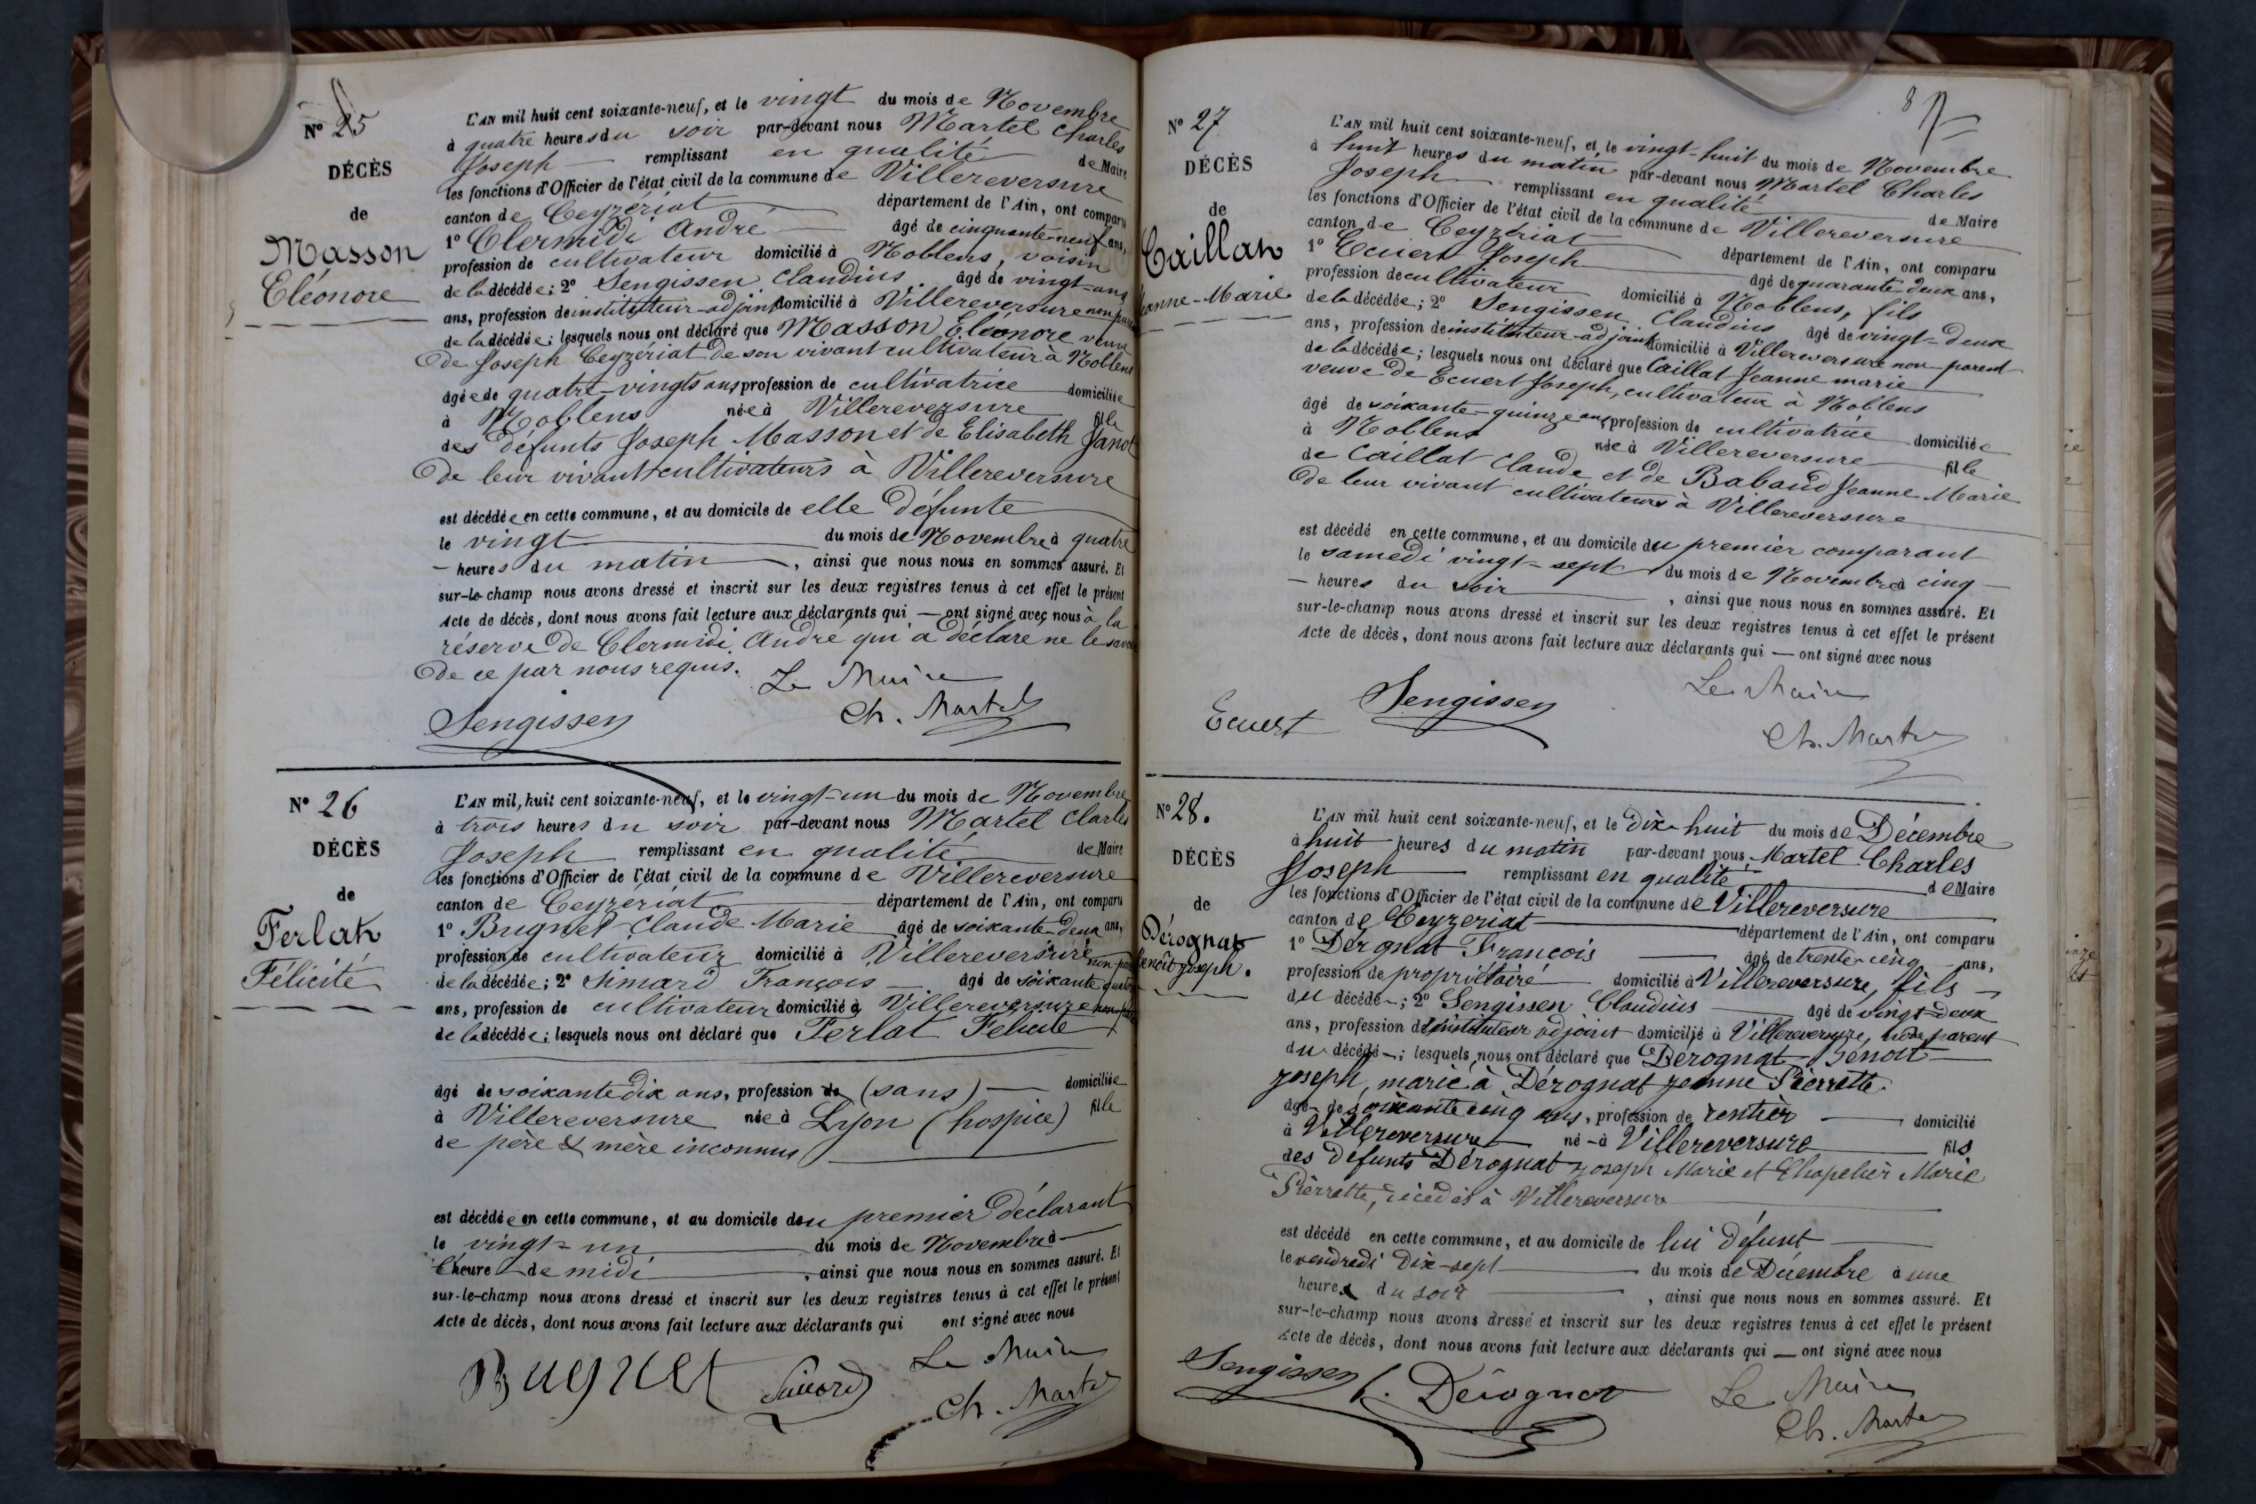 Nº 25
DÉCÈS
de
Masson
Eléonore
L'AN mil huit cent soixante-neuf, et le vingt du mois de Novembre
à quatre heures du soir par-devant nous Martel Charles
Joseph remplissant en qualité de Maire
les fonctions d'Officier de l'état civil de la commune de Villereversure
canton de Ceyzériat département de l'Ain, ont comparu
1º Clermidi André âgé de cinquante-neuf ans,
profession de cultivateur domicilié à Noblens, voisin
de la décédée; 2º Sengissen Claudius âgé de vingt-
ans, profession de instituteur-adjoint domicilié à Villereversure non
de la décédée; lesquels nous ont déclaré que Masson Eléonore veuve
de Joseph Ceyzériat de son vivant cultivateur à Noblens
âgée de quatre-vingts ans profession de cultivatrice domiciliée
à Noblens née à Villereversure fille
des défunts Joseph Masson et de Elisabeth
de leur vivant cultivateurs à Villereversure
est décédée en cette commune, et au domicile de elle défunte
le vingt du mois de Novembre à quatre
heures du matin, ainsi que nous nous en sommes assuré. Et
sur-le-champ nous avons dressé et inscrit sur les deux registres tenus à cet effet le présent
Acte de décès, dont nous avons fait lecture aux déclarants qui — ont signé avec nous à la
réserve de Clermidi André qui a déclaré ne le savoir
de ce par nous requis.
Le Maire
Sengissen
Ch. Martel
Nº 26
DÉCÈS
de
Ferlat
Félicité
L'AN mil huit cent soixante-neuf, et le vingt-un du mois de Novembre
à trois heures du soir par-devant nous Martel Charles
Joseph remplissant en qualité de Maire
les fonctions d'Officier de l'état civil de la commune de Villereversure
canton de Ceyzériat département de l'Ain, ont comparu
1º Buguet Claude Marie âgé de soixante deux ans,
profession de cultivateur domicilié à Villereversure non
de la décédée; 2º Simard François âgé de soixante
ans, profession de cultivateur domicilié à Villereversure non
de la décédée; lesquels nous ont déclaré que Ferlat Félicité
âgé de soixante dix ans, profession de (sans) domiciliée
à Villereversure née à Lyon (hospice) fille
de père & mère inconnus
est décédée en cette commune, et au domicile du premier déclarant
le vingt-un du mois de Novembre à
l'heure de midi, ainsi que nous nous en sommes assuré. Et
sur-le-champ nous avons dressé et inscrit sur les deux registres tenus à cet effet le présent
Acte de décès, dont nous avons fait lecture aux déclarants qui ont signé avec nous
Le Maire
Buguet Simard
Ch. Martel
8
Nº 27
DÉCÈS
de
Caillat
Jeanne-Marie
L'AN mil huit cent soixante-neuf, et le vingt-huit du mois de Novembre
à huit heures du matin par-devant nous Martel Charles
Joseph remplissant en qualité de Maire
les fonctions d'Officier de l'état civil de la commune de Villereversure
canton de Ceyzériat département de l'Ain, ont comparu
1º Ecuert Joseph âgé de quarante-deux ans,
profession de cultivateur domicilié à Noblens, fils
de la décédée; 2º Sengissen Claudius âgé de vingt-deux
ans, profession de instituteur-adjoint domicilié à Villereversure non parent
de la décédée; lesquels nous ont déclaré que Caillat Jeanne marie
veuve de Ecuert Joseph, cultivateur à Noblens
âgé de soixante-quinze ans profession de cultivatrice domiciliée
à Noblens née à Villereversure fille
de Caillat Claude et de Baband Jeanne Marie
de leur vivant cultivateurs à Villereversure
est décédé en cette commune, et au domicile du premier comparant
le samedi vingt-sept du mois de Novembre à cinq
heures du soir, ainsi que nous nous en sommes assuré. Et
sur-le-champ nous avons dressé et inscrit sur les deux registres tenus à cet effet le présent
Acte de décès, dont nous avons fait lecture aux déclarants qui — ont signé avec nous
Le Maire
Ecuert Sengissen
Ch. Martel
Nº 28.
DÉCÈS
de
Dérognat
Benoît Joseph.
L'AN mil huit cent soixante-neuf, et le Dix-huit du mois de Décembre
à huit heures du matin par-devant nous, Martel Charles
Joseph remplissant en qualité de Maire
les fonctions d'Officier de l'état civil de la commune de Villereversure
canton de Ceyzeriat département de l'Ain, ont comparu
1º Dérognat François âgé de trente-cinq ans,
profession de propriétaire domicilié à Villereversure, fils
du décédé; 2º Sengissen Claudius âgé de vingt-deux
ans, profession d'instituteur adjoint domicilié à Villereversure, non parent
du décédé; lesquels nous ont déclaré que Dérognat Benoit
Joseph, marié à Dérognat Jeanne Pierrette.
âgé de soixante cinq ans, profession de rentier domicilié
à Villereversure né à Villereversure fils
des défunts Dérognat Joseph Marie et Chapelier Marie
Pierrette, décédés à Villereversure
est décédé en cette commune, et au domicile de lui défunt
le vendredi Dix-sept du mois de Décembre à une
heure du soir, ainsi que nous nous en sommes assuré. Et
sur-le-champ nous avons dressé et inscrit sur les deux registres tenus à cet effet le présent
Acte de décès, dont nous avons fait lecture aux déclarants qui — ont signé avec nous
Sengissen f. Dérognat Le Maire
Ch. Martel